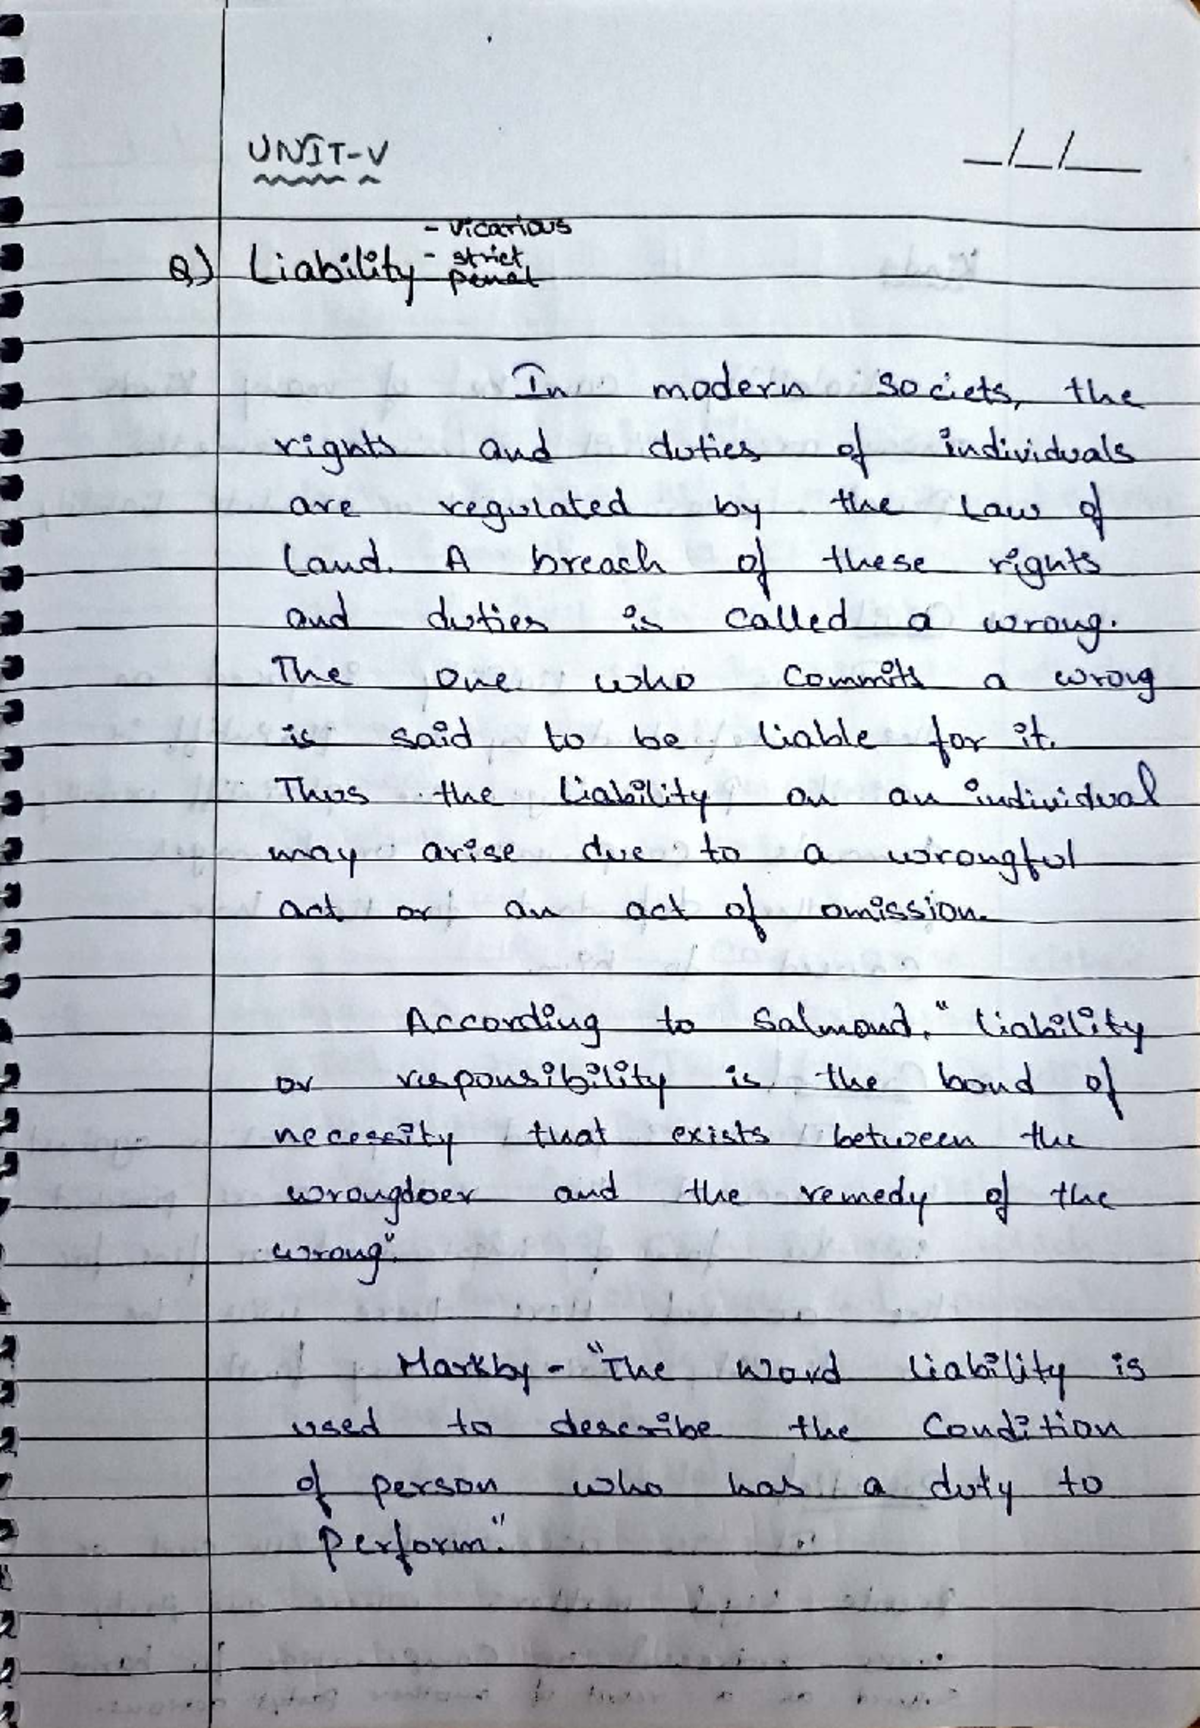 UNIT-V
_/_/__
- vicarious
Q) Liability - strict
penal
In modern societs, the
rights and duties of individuals
are regulated by the Law of
Land. A breach of these rights
and duties is called a wrong.
The one who commits a wrong
is said to be liable for it.
Thus the liability on an individual
may arise due to a wrongful
act or an act of omission.
According to Salmond, "liability
or responsibility is the bond of
necessity that exists between the
wrongdoer and the remedy of the
wrong".
Markby - "The word liability is
used to describe the condition
of person who has a duty to
perform."